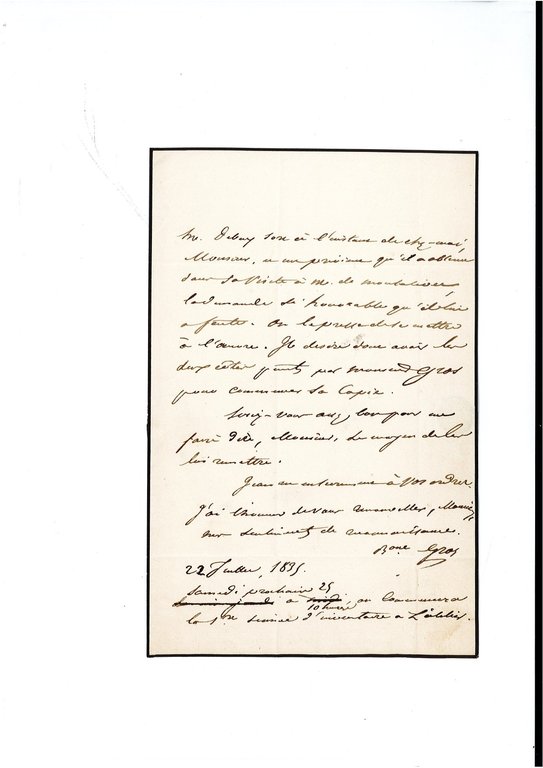 M. Debay sort à l'instant de chez-moi,
Monsieur, et me prévient qu'il a obtenu
dans sa visite à M. de Montalivet
la demande si honorable qu'il lui
a faite. On le presse de se mettre
à l'œuvre. Il désire donc avoir les
deux têtes peintes par monsieur Gros
pour commencer sa Copie.
Serez-vous assez bon pour me
faire dire, Monsieur, le moyen de les
lui remettre.
à Vos ordres.
J'ai l'honneur de vous renouveller, Monsieur
mes sentiments de reconnaissance.
Bonne Gros
22 Juillet, 1835.
Samedi prochain 25
a 10 heures, on commencera
la 1re séance d'inventaire a L'atelier.